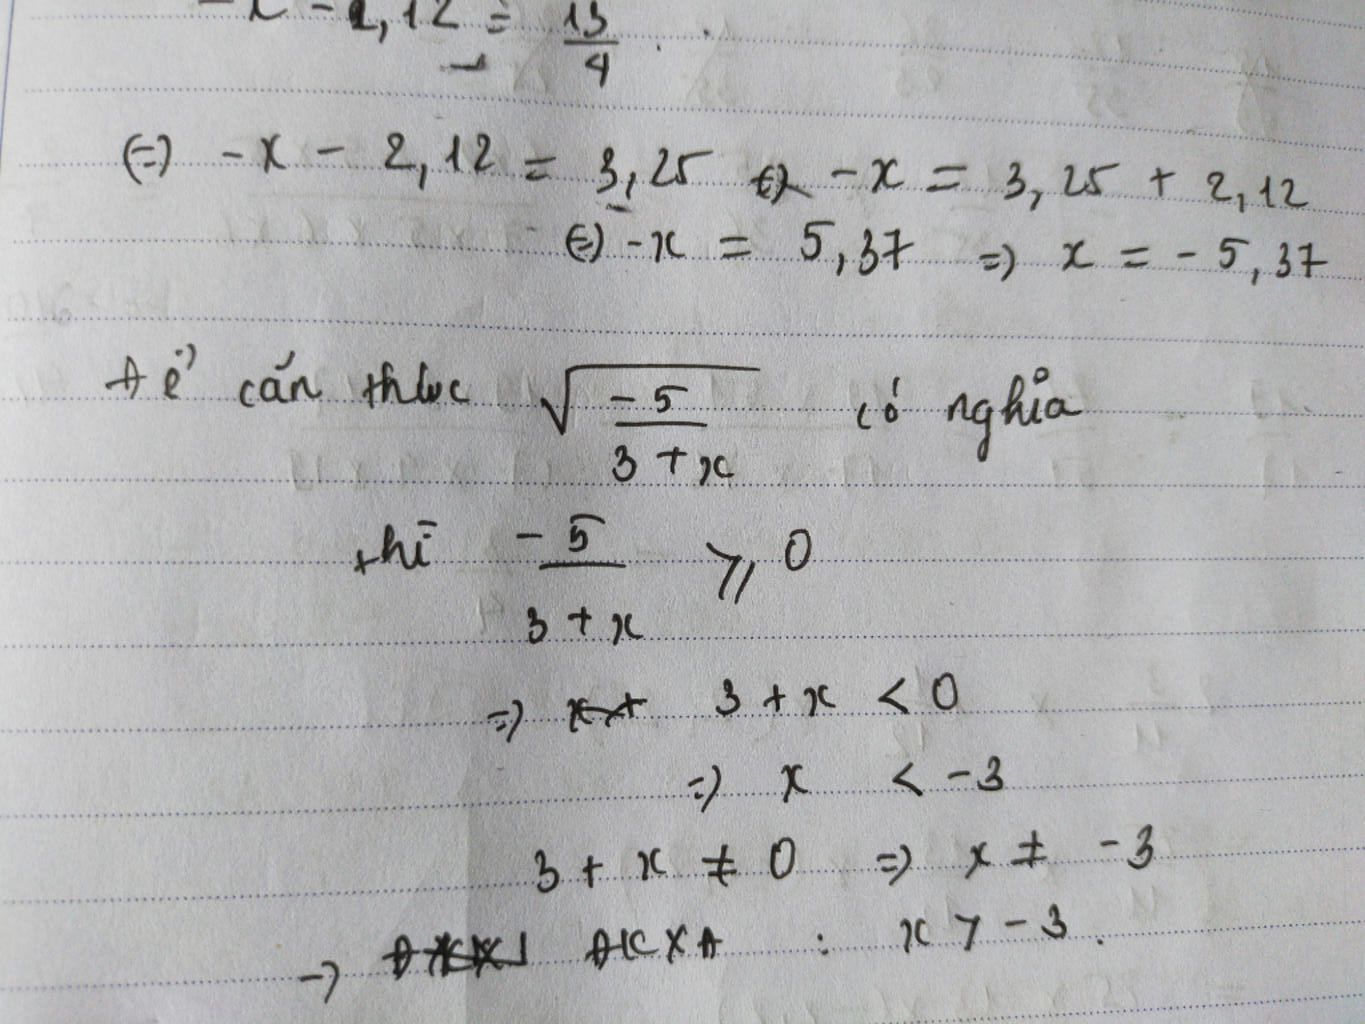 -x - 2,12 = 13/4
(=) -x - 2,12 = 3,25 (=) -x = 3,25 + 2,12
(=) -x = 5,37 =) x = -5,37
Để căn thức √(-5/(3+x)) có nghĩa
thì -5/(3+x) ⩾ 0
=) 3 + x < 0
=) x < -3
3 + x ≠ 0 =) x ≠ -3
=) ĐKXĐ : x > -3.